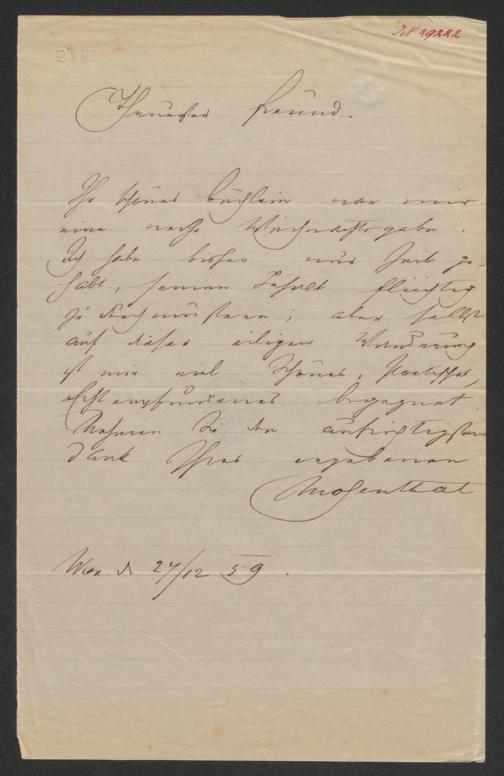 IN 29222
Theuerster Freund.
Ihr schönes Büchlein war mir
eine werthe Weihnachtsgabe.
Ich habe bisher nur Zeit ge-
habt, seinen Inhalt flüchtig
zu durchmustern; aber selbst
auf dieser eiligen Wanderung
ist mir viel Schönes, Poetisches,
Echt empfundenes begegnet.
Nehmen Sie den aufrichtigsten
Dank Ihres ergebenen
Mosenthal
Wien d. 27/12 59.